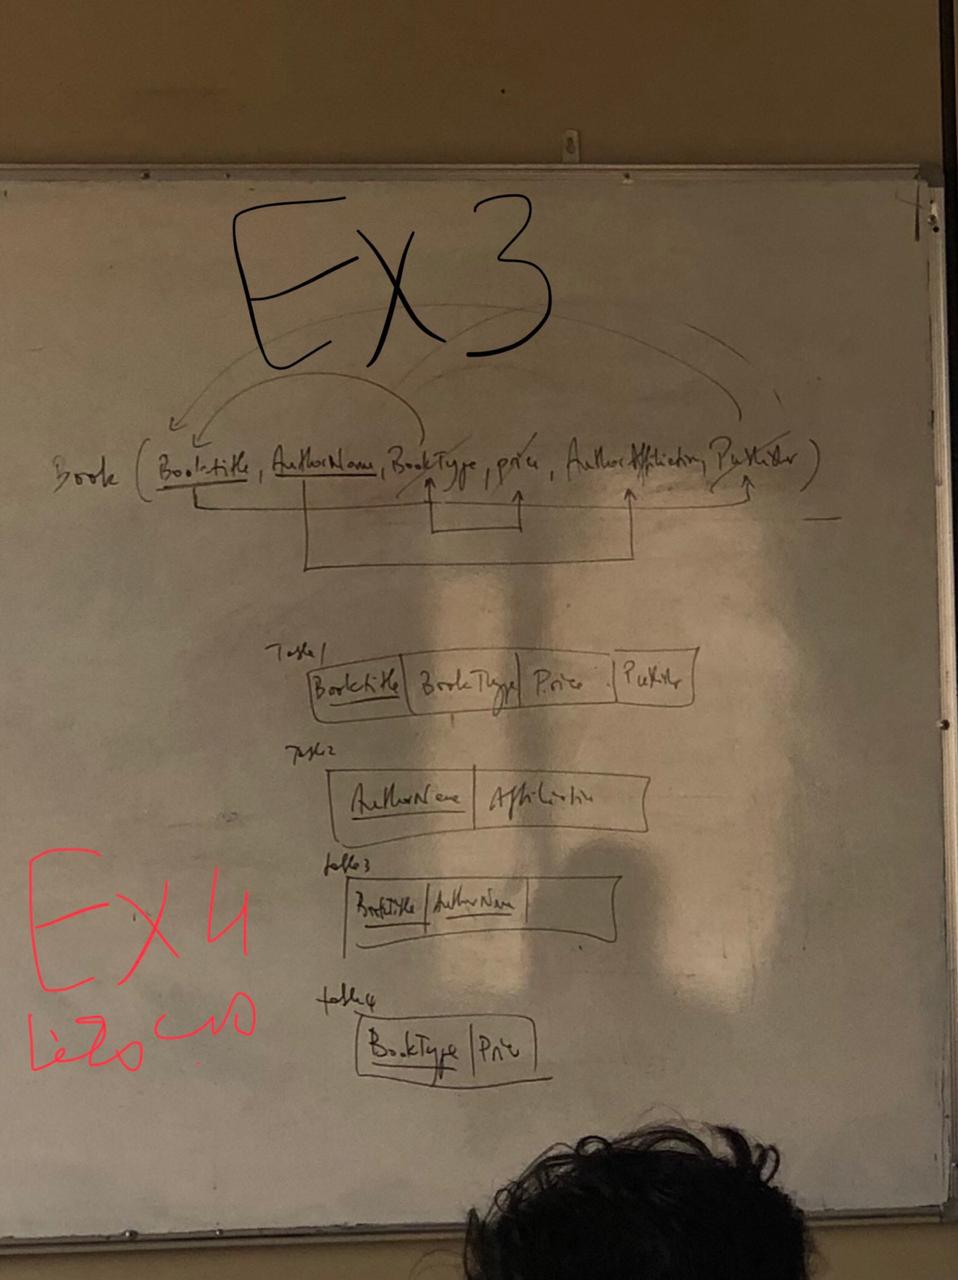 EX3
Book (Booktitle, AuthorName, BookType, price, AuthorAffiliation, Publisher)
Table1
Booktitle BookType Price Publisher
Table2
AuthorName Affiliation
table3
BookTitle AuthorName
table4
BookType Price
EX4